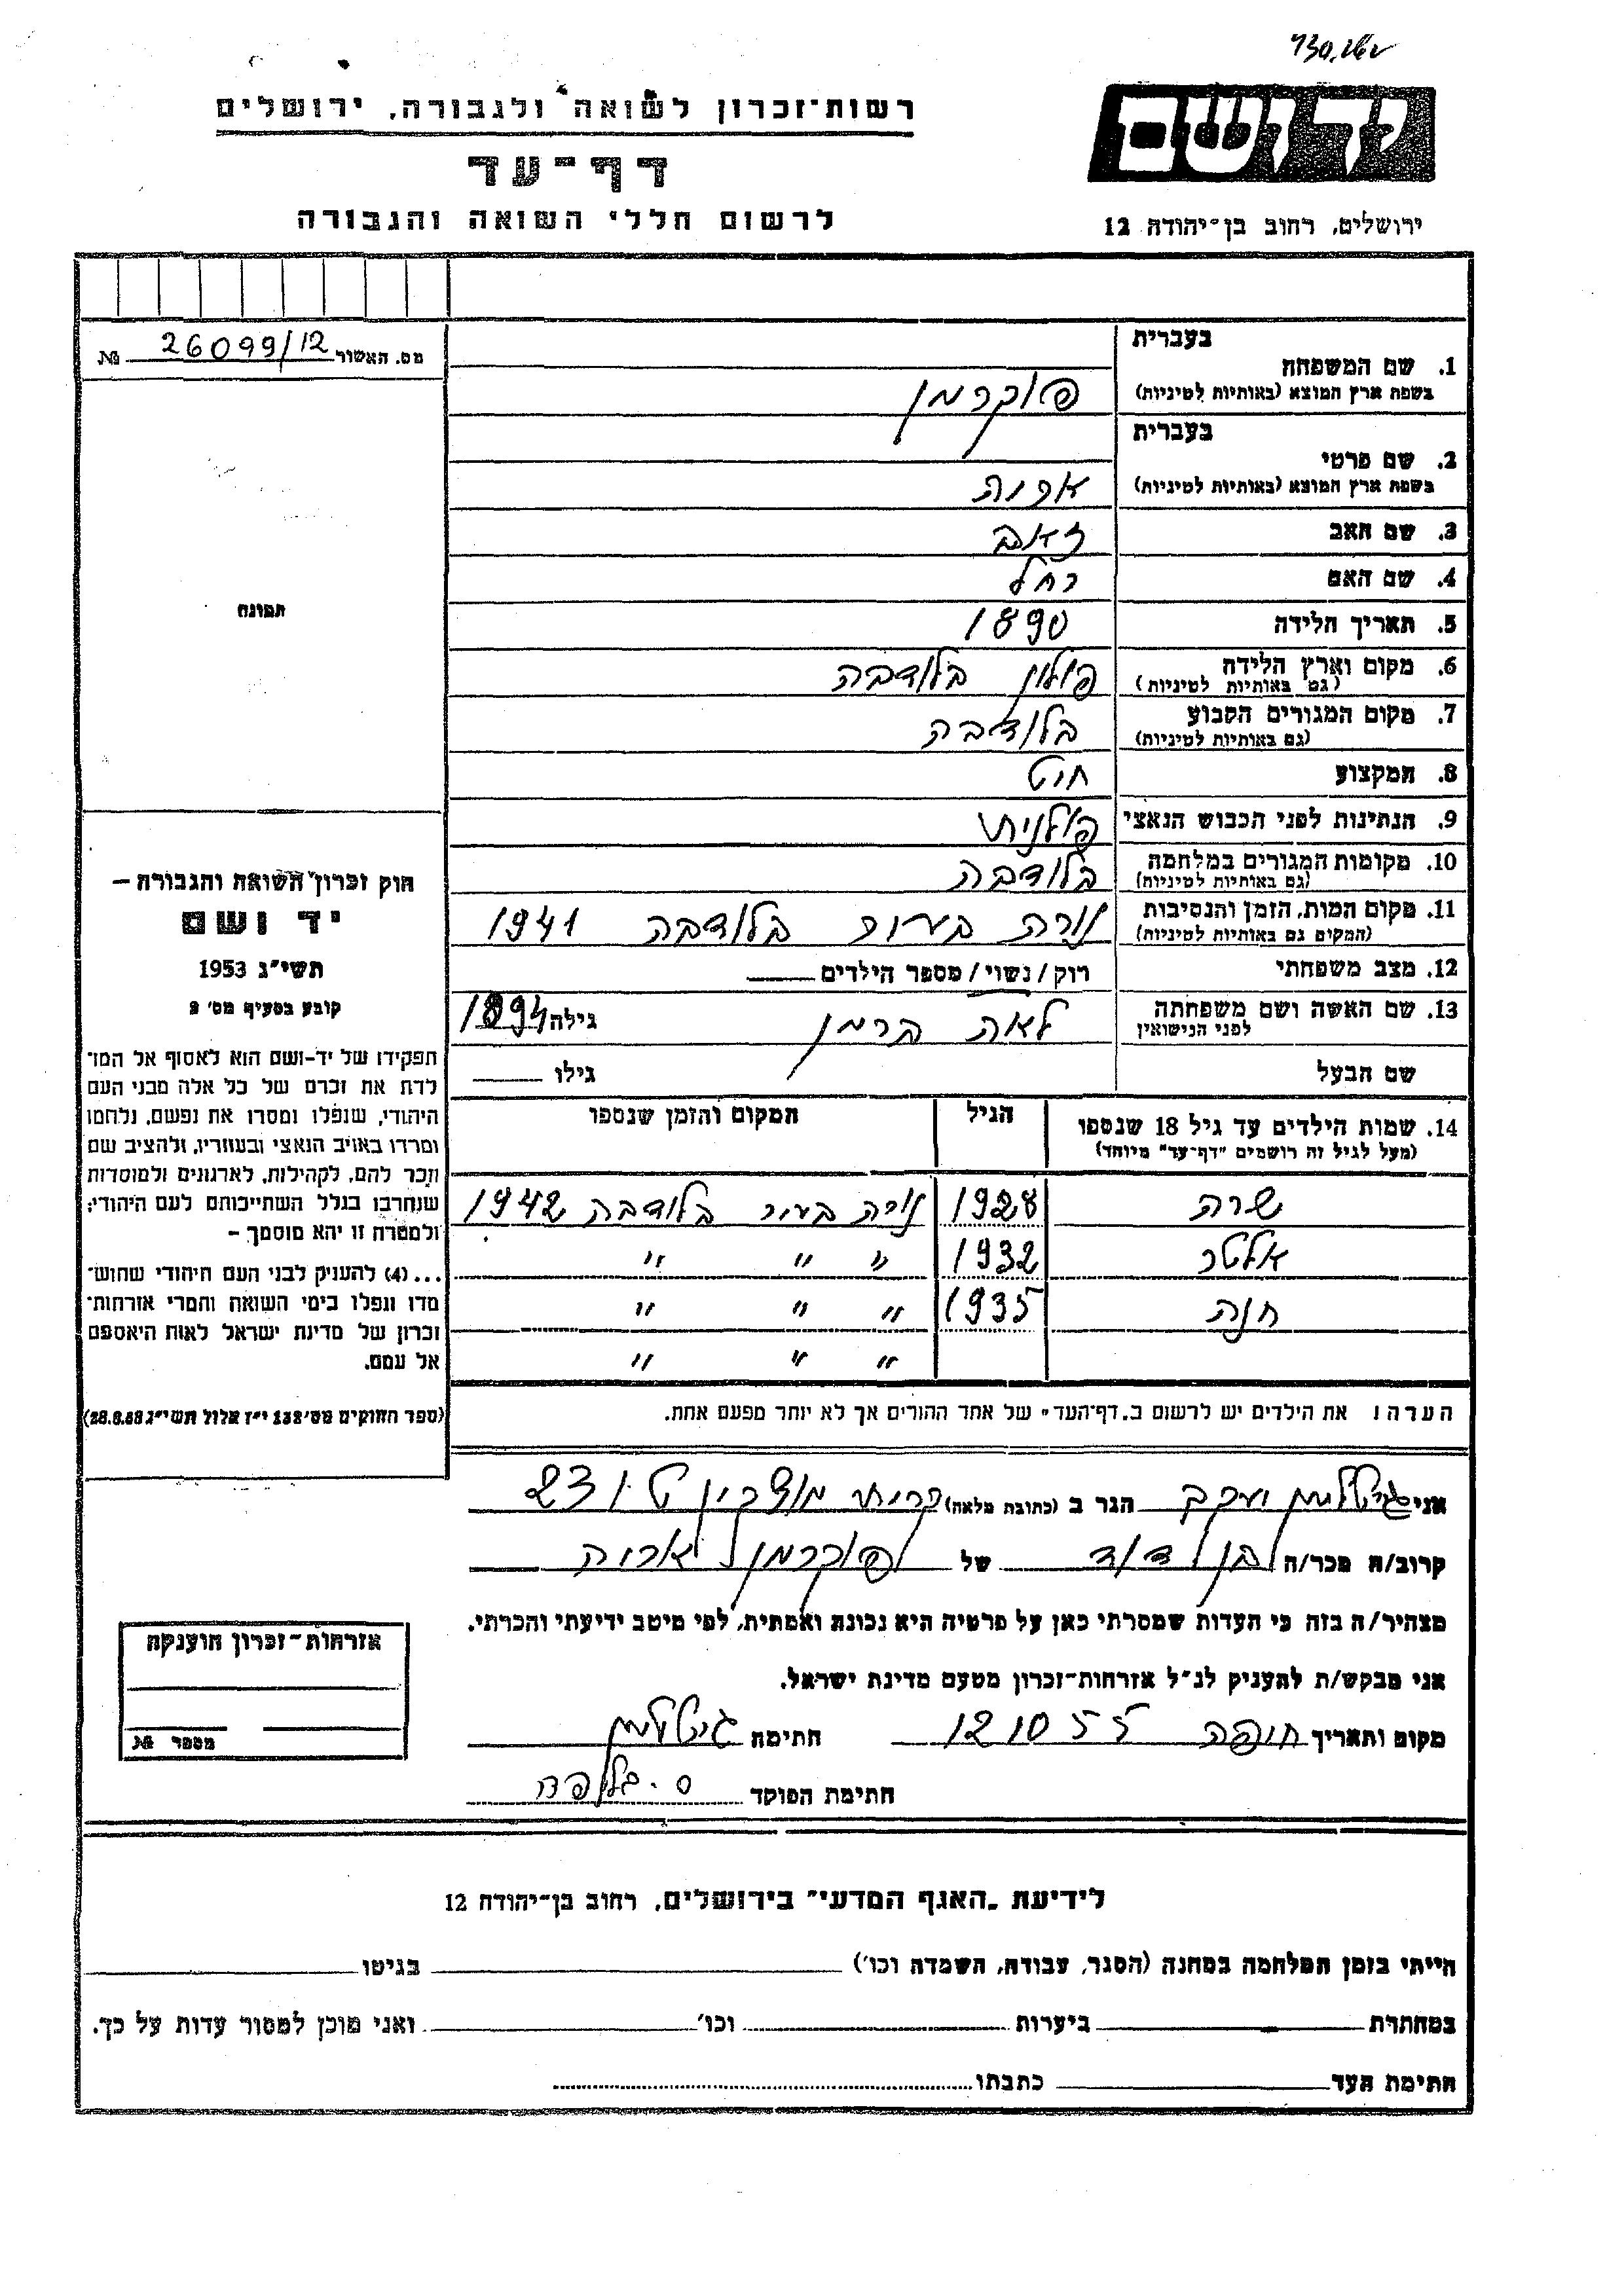 רשות־זכרון לשואה ולגבורה, ירושלים
דף־עד
לרשום חללי השואה והגבורה
יד ושם
ירושלים, רחוב בן־יהודה 12
מס. האשור 26099/12 №
בעברית
1. שם המשפחה
בשפת ארץ המוצא (באותיות לטיניות)
פוקרמן
בעברית
2. שם פרטי
בשפת ארץ המוצא (באותיות לטיניות)
אריה
3. שם האב זאב
4. שם האם רחל
5. תאריך הלידה 1890
6. מקום וארץ הלידה פולין בלודבה
(גם באותיות לטיניות)
7. מקום המגורים הקבוע בלודבה
(גם באותיות לטיניות)
8. המקצוע חיט
9. הנתינות לפני הכבוש הנאצי פולנית
10. מקומות המגורים במלחמה בלודבה
(גם באותיות לטיניות)
11. מקום המות, הזמן והנסיבות נורה בעיר בלודבה 1941
(המקום גם באותיות לטיניות)
12. מצב משפחתי רוק/נשוי/מספר הילדים
13. שם האשה ושם משפחתה לאה ברמן גילה 1894
לפני הנישואין
שם הבעל גילו
14. שמות הילדים עד גיל 18 שנספו הגיל המקום והזמן שנספו
(מעל לגיל זה רושמים "דף־עד" מיוחד)
שרה 1928 נורה בעיר בלודבה 1942
אלטר 1932 " " "
חנה 1935 " " "
" " "
הערה: את הילדים יש לרשום ב„דף־העד" של אחד ההורים אך לא יותר מפעם אחת.
תמונה
חוק זכרון השואה והגבורה –
יד ושם
תשי"ג 1953
קובע בסעיף מס' 2
תפקידו של יד-ושם הוא לאסוף אל המו־
לדת את זכרם של כל אלה מבני העם
היהודי, שנפלו ומסרו את נפשם, נלחמו
ומרדו באויב הנאצי ובעוזריו, ולהציב שם
וזכר להם, לקהילות, לארגונים ולמוסדות
שנחרבו בגלל השתייכותם לעם היהודי;
ולמטרה זו יהא מוסמך –
...(4) להעניק לבני העם היהודי שהוש־
מדו ונפלו בימי השואה והמרי אזרחות־
זכרון של מדינת ישראל לאות היאספם
אל עמם.
(ספר החוקים מס' 132 י"ז אלול תשי"ג 28.8.53)
אני גיטלמן יעקב הגר ב (כתובת מלאה) קרית מוצקין 231
קרוב/ה מכר/ה בן דוד של פוקרמן אריה
מצהיר/ה בזה כי העדות שמסרתי כאן על פרטיה היא נכונה ואמתית, לפי מיטב ידיעתי והכרתי.
אני מבקש/ת להעניק לנ"ל אזרחות־זכרון מטעם מדינת ישראל.
מקום ותאריך חיפה 12 10 55 חתימה גיטלמן
חתימת הפוקד
אזרחות־זכרון הוענקה
מספר №
לידיעת „האגף המדעי" בירושלים, רחוב בן־יהודה 12
הייתי בזמן המלחמה במחנה (הסגר, עבודה, השמדה וכו') בגיטו
במחתרת ביערות וכו' ואני מוכן למסור עדות על כך.
חתימת העד כתבתו